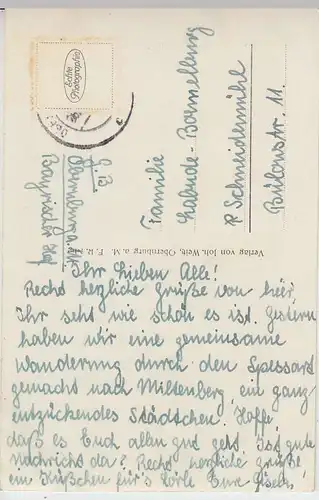 Echte
Photographie
z. Zt.
Obernburg a./M.
Bayrischer Hof
Familie
Labude-Bormelburg
Schneidemühl
Bülowstr. 11.
Verlag von Joh. Welt, Obernburg a. M. F. R.
Ihr lieben Alle!
Recht herzliche Grüße von hier,
Ihr seht wie schön es ist. Gestern
haben wir eine gemeinsame
Wanderung durch den Spessart
gemacht nach Miltenberg, ein ganz
entzückendes Städtchen. Hoffe,
daß es Euch allen gut geht. Ist gute
Nachricht da? Recht herzliche Grüße,
ein Küßchen für's Lörle Eure